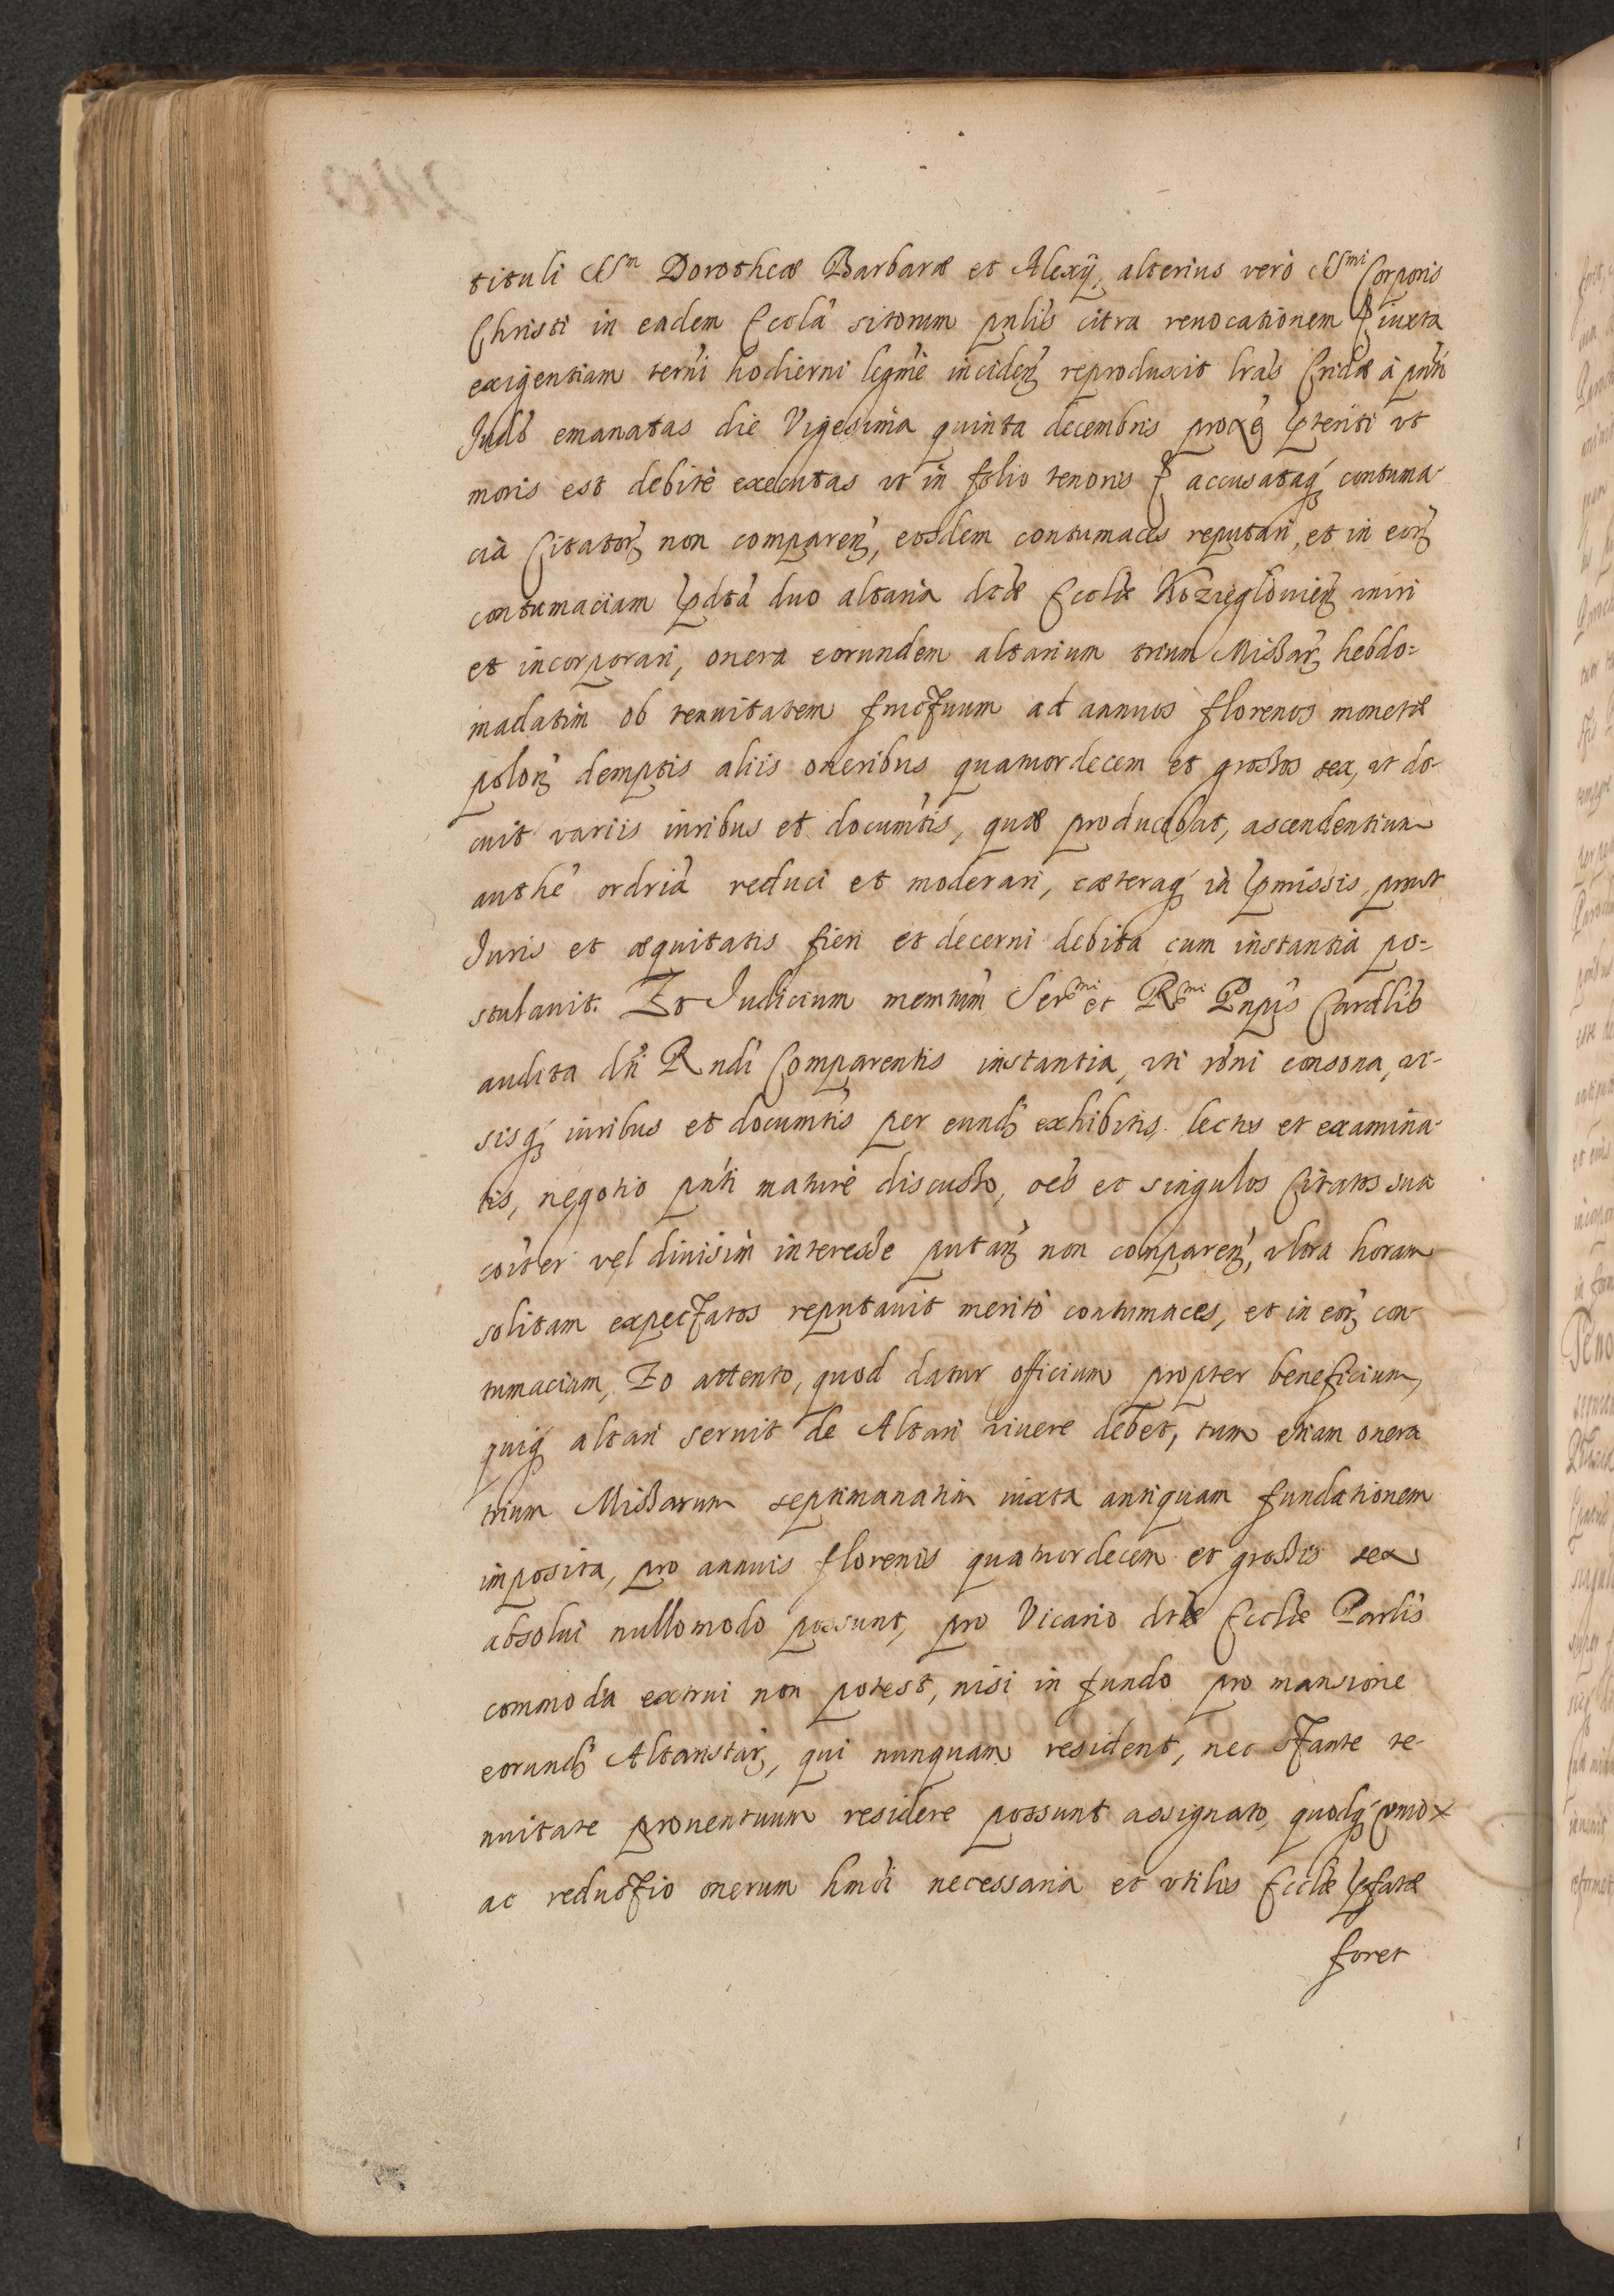 tituli SSm Dorotheæ Barbaræ et Alexij, alterius verò SSmi Corporis
Christi in eadem Eccla sitorum pnlis citra reuocationem iuxta
exigentiam terni hodierni legme inciden reproduxit lras Cridæ à pnti
Judo emanatas die Vigesima quinta decembris proxe pteriti vt
moris est debitè executas vt in folio tenoris accusataq contuma-
cia Citator non comparen, eosdem contumaces reputari, et in eor
contumaciam pdta duo altaria dtæ Eccliæ Kozieglouien vniri
et incorporari, onera eorundem altarium trium Missar hebdo=
madatim ob tenuitatem fructuum ad annuos florenos monetæ
polon demptis aliis oneribus quatuordecem et grossos sex, vt do-
cuit variis iuribus et documtis, quæ producebat, ascendentium
authe ordria reduci et moderari, cæteraq in pmissis, prout
Juris et æquitatis fieri et decerni debita cum instantia po=
stulauit. Et Judicium memtum Sermi et Rmi Pnpis Cardlis
audita dni Rndi Comparentis instantia, vti roni consona, vi-
sisq iuribus et documtis per eund exhibitis lectis et examina-
tis, negotio pnti maturè discusso, oes et singulos Citatos sua
coiter vel diuisim interesse putan non comparen, vltra horam
solitam expectatos reputauit meritò contumaces, et in eor con
tumaciam, Eo attento, quod datur officium propter beneficium,
quiq altari seruit de Altari viuere debet, tum etiam onera
trium Missarum septimanatim iuxta antiquam fundationem
imposita, pro annuis florenis quatuordecem et grossis sex
absolui nullomodo possunt, pro Vicario dtæ Eccliæ Parlis
commoda extrui non potest, nisi in fundo pro mansione
eorund Altaristar, qui nunquam resident, nec stante te-
nuitate prouentuum residere possunt assignato, quodq vnio
ac reductio onerum hmdi necessaria et vtilis Eccliæ pfatæ
foret